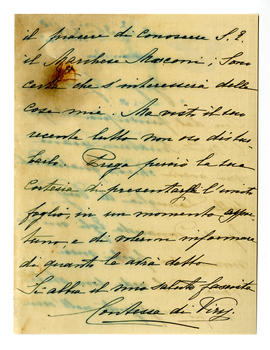 il piacere di conoscere S. E.
il Marchese Mosconi; sono
certa che s'interesserà delle
cose mie. Ma visto il suo
recente lutto non oso distur-
barlo. Prego perciò la sua
cortesia di presentargli l'unito
foglio, in un momento oppor-
tuno, e di volermi informare
di quanto le avrà detto.
Si abbia il mio saluto
Contessa di Viry.